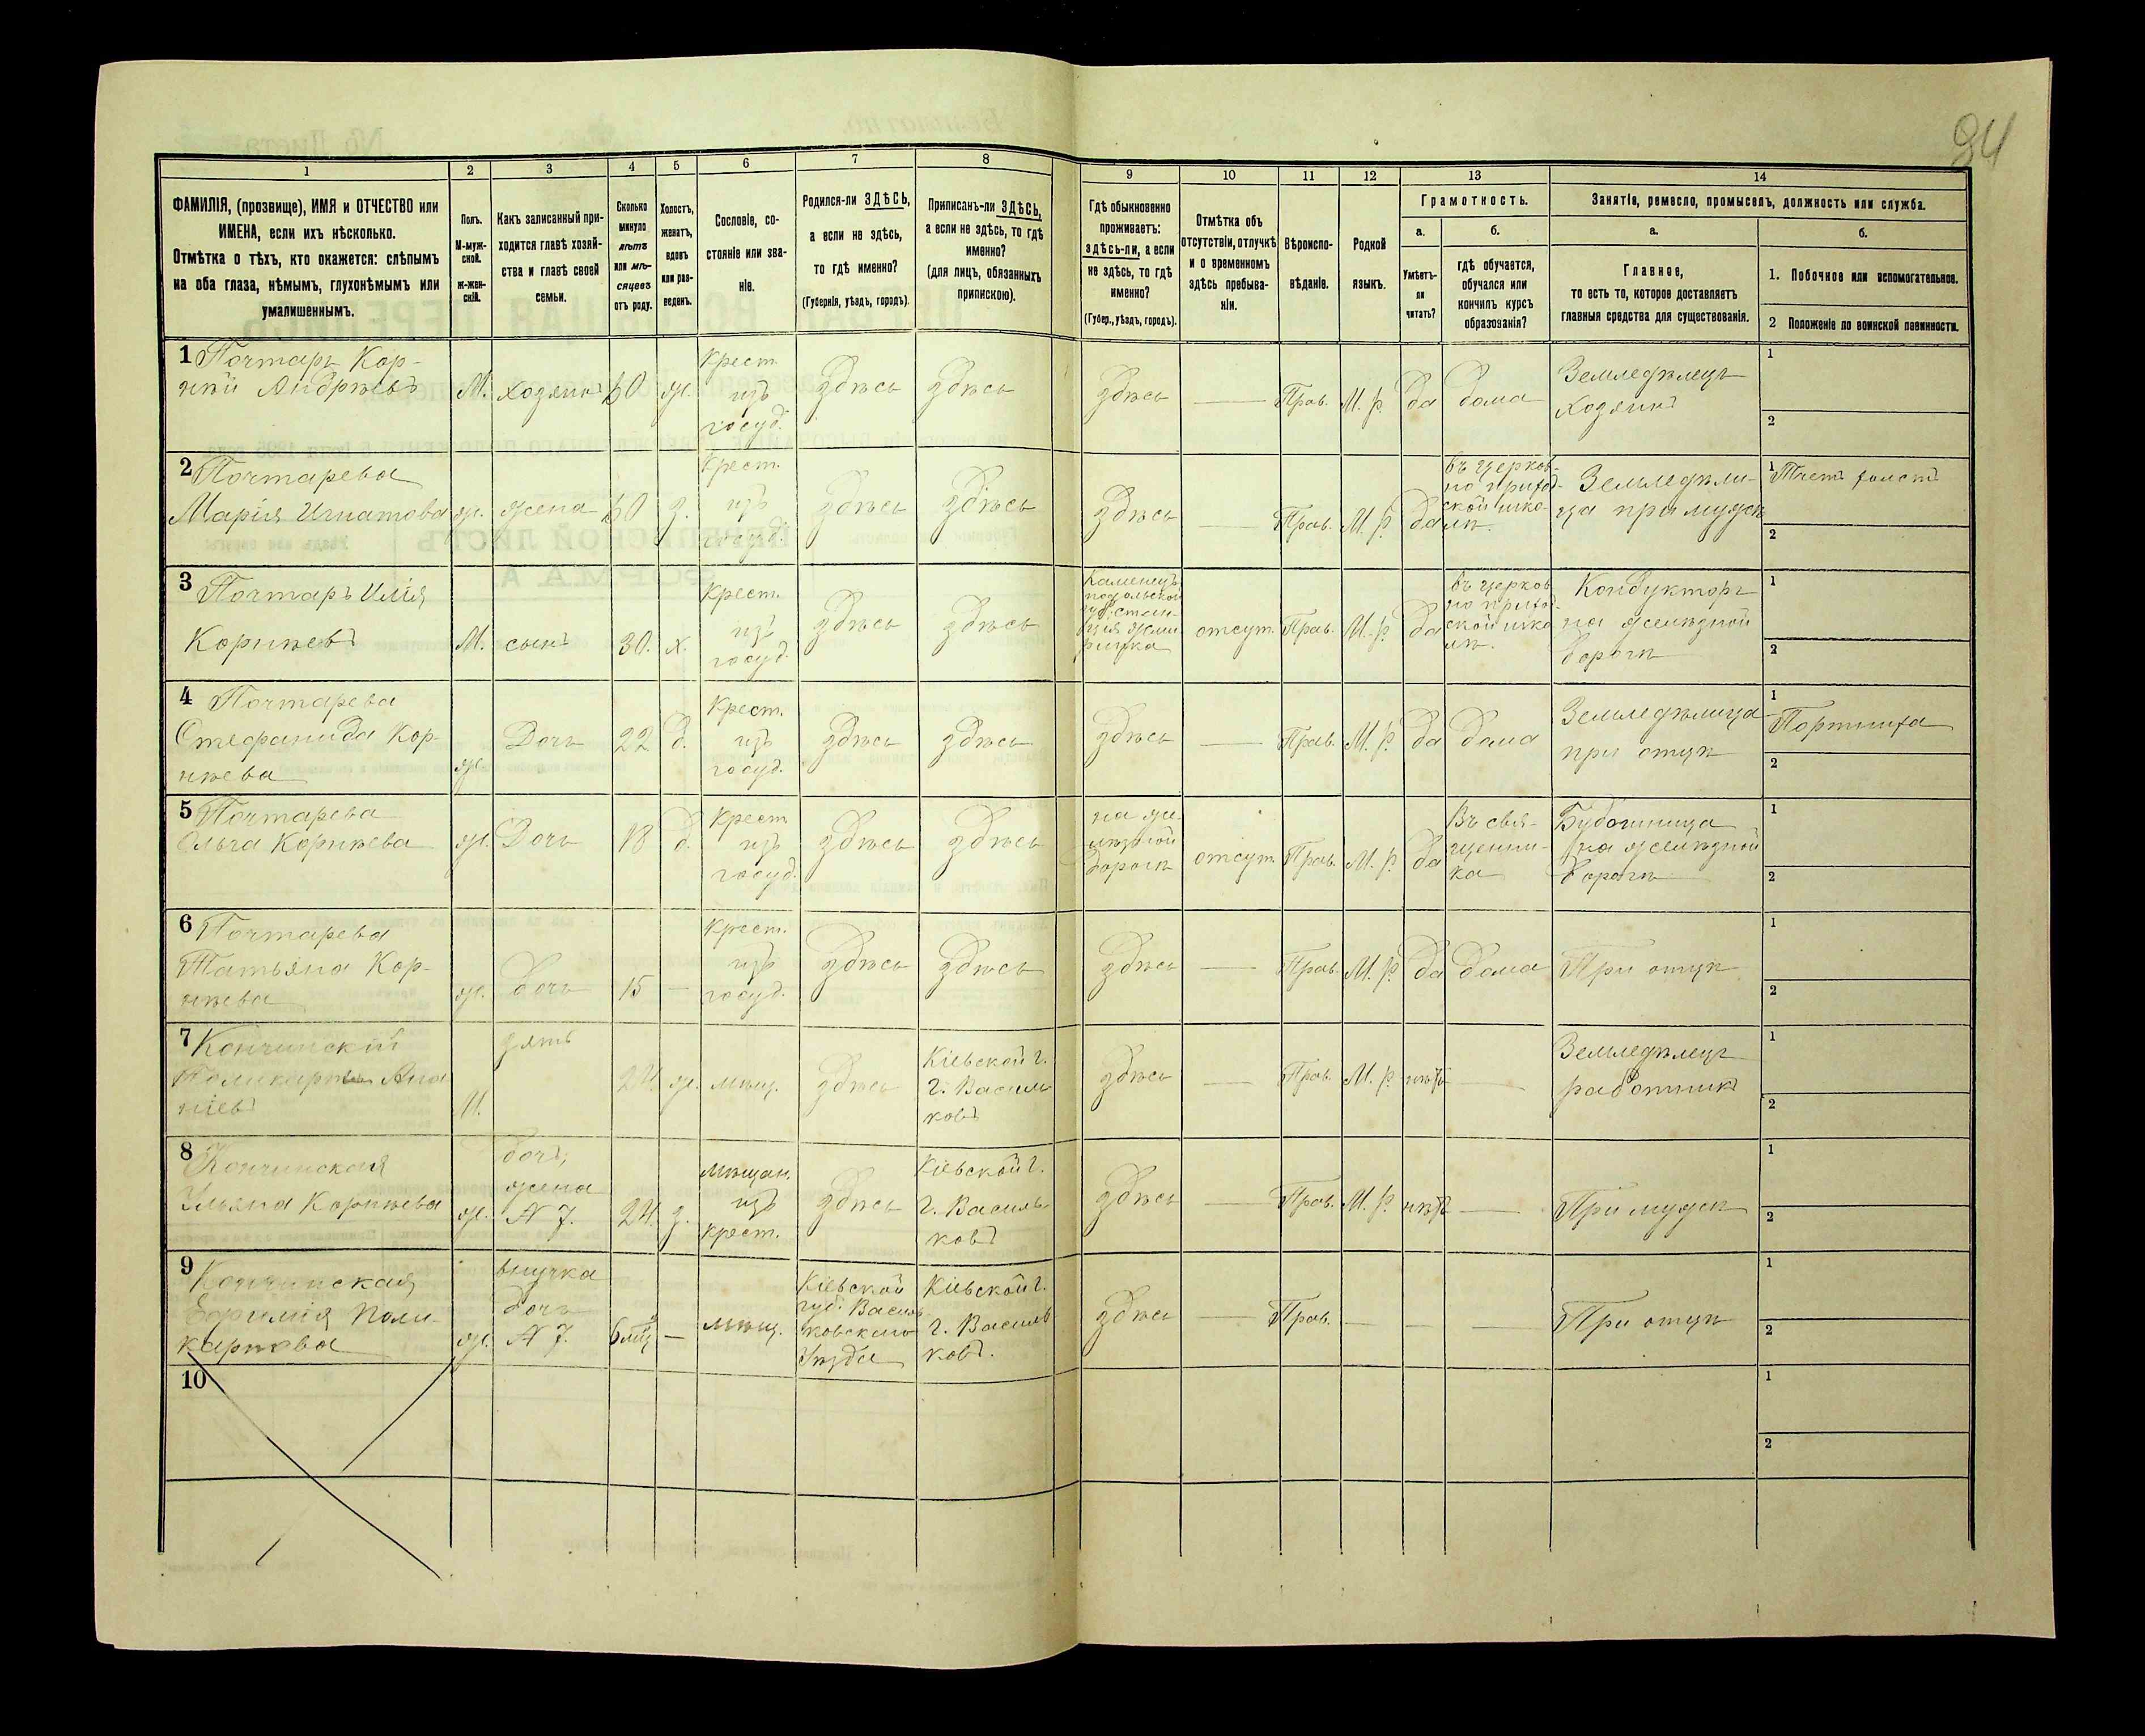 84
1 2 3 4 5 6 7 8 9 10 11 12 13 14
ФАМИЛІЯ, (прозвище), ИМЯ и ОТЧЕСТВО или
ИМЕНА, если ихъ нѣсколько.
Отмѣтка о тѣхъ, кто окажется: слѣпымъ
на оба глаза, нѣмымъ, глухонѣмымъ или
умалишеннымъ.
Полъ.
М-муж-
ской.
ж-жен-
скій.
Какъ записанный при-
ходится главѣ хозяй-
ства и главѣ своей
семьи.
Сколько
минуло
лѣтъ
или мѣ-
сяцевъ
отъ роду.
Холостъ,
женатъ,
вдовъ
или раз-
веденъ.
Сословіе, со-
стояніе или зва-
ніе.
Родился-ли ЗДѢСЬ,
а если не здѣсь,
то гдѣ именно?
(Губернія, уѣздъ, городъ).
Приписанъ-ли ЗДѢСЬ,
а если не здѣсь, то гдѣ
именно?
(для лицъ, обязанныхъ
припискою).
Гдѣ обыкновенно
проживаетъ:
здѣсь-ли, а если
не здѣсь, то гдѣ
именно?
(Губер., уѣздъ, городъ).
Отмѣтка объ
отсутствіи, отлучкѣ
и о временномъ
здѣсь пребыва-
ніи.
Вѣроиспо-
вѣданіе.
Родной
языкъ.
Грамотность.
а.
Умѣетъ-
ли
читать?
б.
гдѣ обучается,
обучался или
кончилъ курсъ
образованія?
Занятіе, ремесло, промыселъ, должность или служба.
а.
Главное,
то есть то, которое доставляетъ
главныя средства для существованія.
б.
1. Побочное или вспомогательное.
2 Положеніе по воинской повинности.
1 Почтарь Кор-
нѣй Андрѣевъ
М. хозяинъ 60 ж.
Крест.
изъ
госуд.
здѣсь здѣсь здѣсь — Прав. М. р. да дома
Земледѣлецъ
хозяинъ
1
2
2 Почтарева
Марія Игнатова
ж. жена 60 з.
Крест.
изъ
госуд.
здѣсь здѣсь здѣсь — Прав. М. р. да
въ церков-
но приход-
ской шко-
лѣ.
Земледѣли-
ца при мужѣ
1 Ткетъ холстъ
2
3 Почтарь Илія
Корнѣевъ
М. сынъ 30. х.
Крест.
изъ
госуд.
здѣсь здѣсь
Каменецъ
подольской
губ. стан-
ція Жме-
ринка
отсут. Прав. М. р. да
въ церков
но приход-
ской шко
лѣ.
Кондукторъ
на желѣзной
дорогѣ
1
2
4 Почтарева
Стефанида Кор-
нѣева
ж. Дочь 22 д.
Крест.
изъ
госуд.
здѣсь здѣсь здѣсь — Прав. М. р. да дома
Земледѣлица
при отцѣ
1
Портниха
2
5 Почтарева
Ольга Корнѣева
ж. Дочь 18 д.
Крест
изъ
госуд.
здѣсь здѣсь
на же-
лѣзной
дорогѣ
отсут. Прав. М. р. да
Въ свя-
щенни-
ка
Будочница
на желѣзной
дорогѣ
1
2
6 Почтарева
Татьяна Кор-
нѣева
ж. дочь 15 —
Крест.
изъ
госуд.
здѣсь здѣсь здѣсь — Прав. М. р. да дома При отцѣ
1
2
7 Кончинскій
Поликарпъ Ана
ніевъ
М. зять 24. ж. мѣщ. здѣсь
Кіевской г.
г. Василь
ковъ
здѣсь — Прав. М. р. нѣтъ —
Земледѣлецъ
работникъ
1
2
8 Кончинская
Ульяна Корнѣева
ж.
дочь,
жена
N 7.
24. з.
мѣщан.
изъ
крест.
здѣсь
Кіевской г.
г. Василь-
ковъ
здѣсь — Прав. М. р. нѣтъ — При мужѣ
1
2
9 Кончинская
Ефимія Поли-
карпова
ж.
внучка
дочь
N 7.
6 мѣц. — мѣщ.
Кіевской
губ. Василь
ковскаго
Уѣзда
Кіевской г.
г. Василь
ковъ.
здѣсь — Прав. — — — При отцѣ
1
2
10
1
2